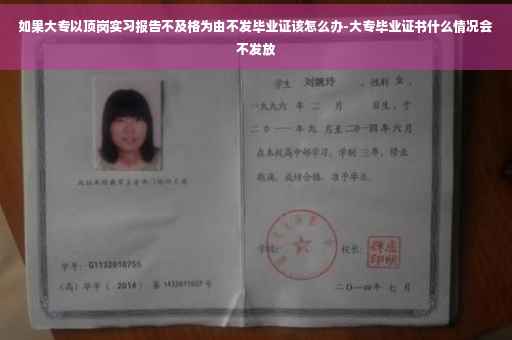 如果大专以顶岗实习报告不及格为由不发毕业证该怎么办-大专毕业证书什么情况会
不发放
学生 刘婉玲 ，性别 女 ，
一九九六 年 二 月 日生，于
二0一一年 九 月至二0一四年 六 月
在本校高中部学习，学制 三年，修业
期满，成绩合格，准予毕业。
学校: 校长:
学号: G1132010755
(高) 毕字 ( 2014 ) 第 1432011007 号
二〇一四年 七 月